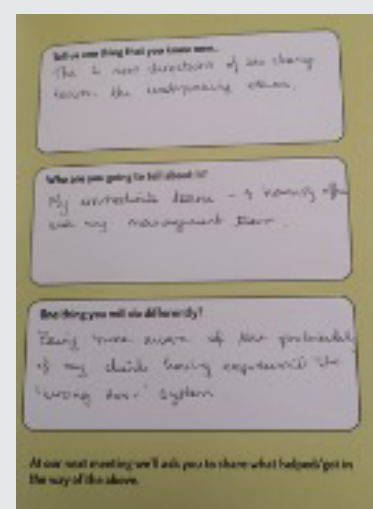 Tell us one thing that you know now..
The 2 new directions of
the
Who are you going to tell about it?
My immediate team - 4 housing
and my management team.
One thing you will do differently?
Being more aware of the
of my clients having experienced the
'wrong door' system
At our next meeting we'll ask you to share what helped/got in
the way of the above.